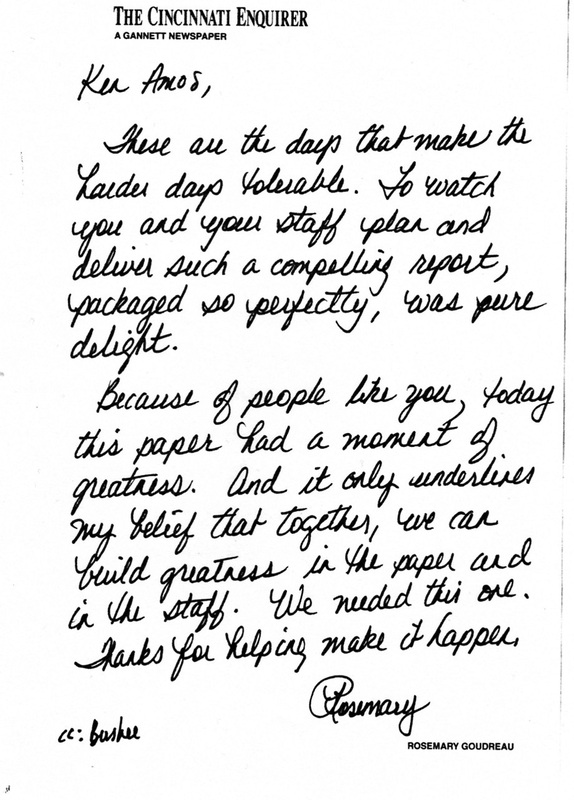 THE CINCINNATI ENQUIRER
A GANNETT NEWSPAPER
Ken Amos,
These are the days that make the
harder days tolerable. To watch
you and your staff plan and
deliver such a compelling report,
packaged so perfectly, was pure
delight.
Because of people like you, today
this paper had a moment of
greatness. And it only underlines
my belief that together, we can
build greatness in the paper and
in the staff. We needed this one.
Thanks for helping make it happen.
Rosemary
cc:
ROSEMARY GOUDREAU